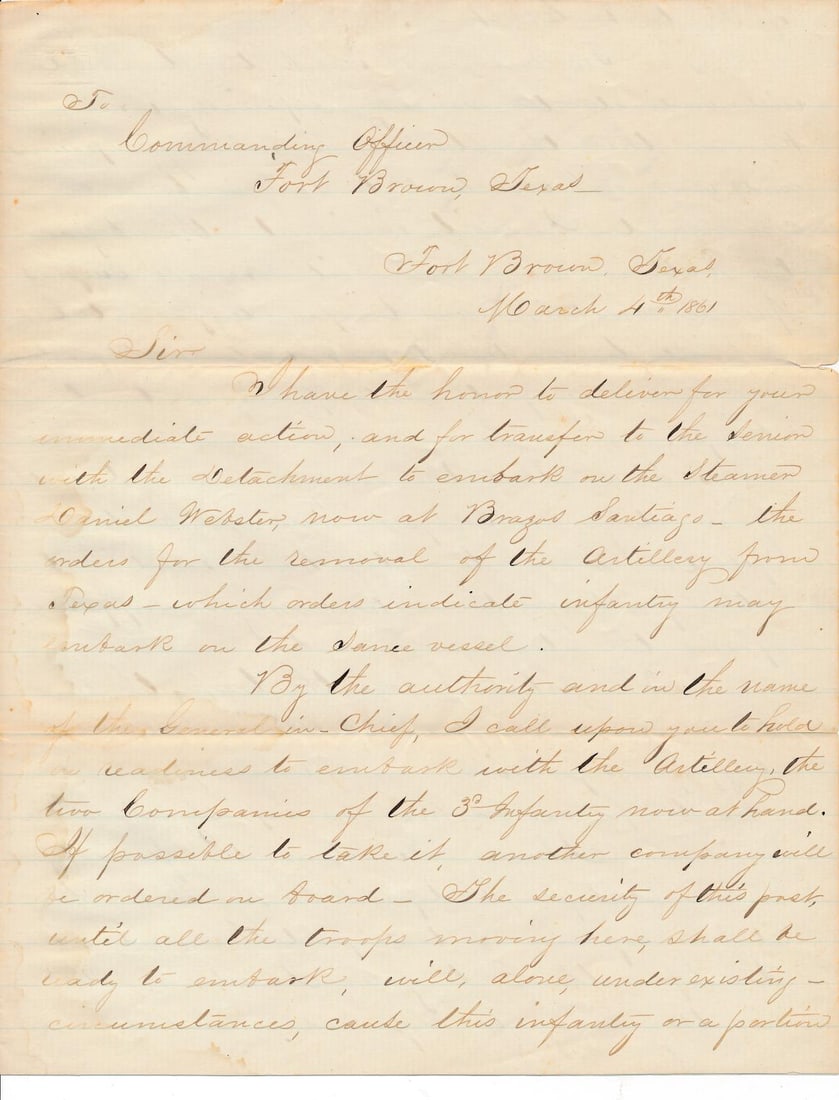 To
Commanding Officer
Fort Brown, Texas
Fort Brown, Texas,
March 4th 1861
Sir
I have the honor to deliver for your
immediate action, and for transfer to the Senior
with the Detachment to embark on the Steamer
Daniel Webster, now at Brazos Santiago - the
orders for the removal of the Artillery from
Texas - which orders indicate infantry may
embark on the same vessel.
By the authority and in the name
of the General-in-Chief, I call upon you to hold
in readiness to embark with the Artillery, the
two Companies of the 3d Infantry now at hand.
If possible to take it, another company will
be ordered on board - The security of this post,
until all the troops moving here, shall be
ready to embark, will, alone, under existing -
circumstances, cause this infantry or a portion